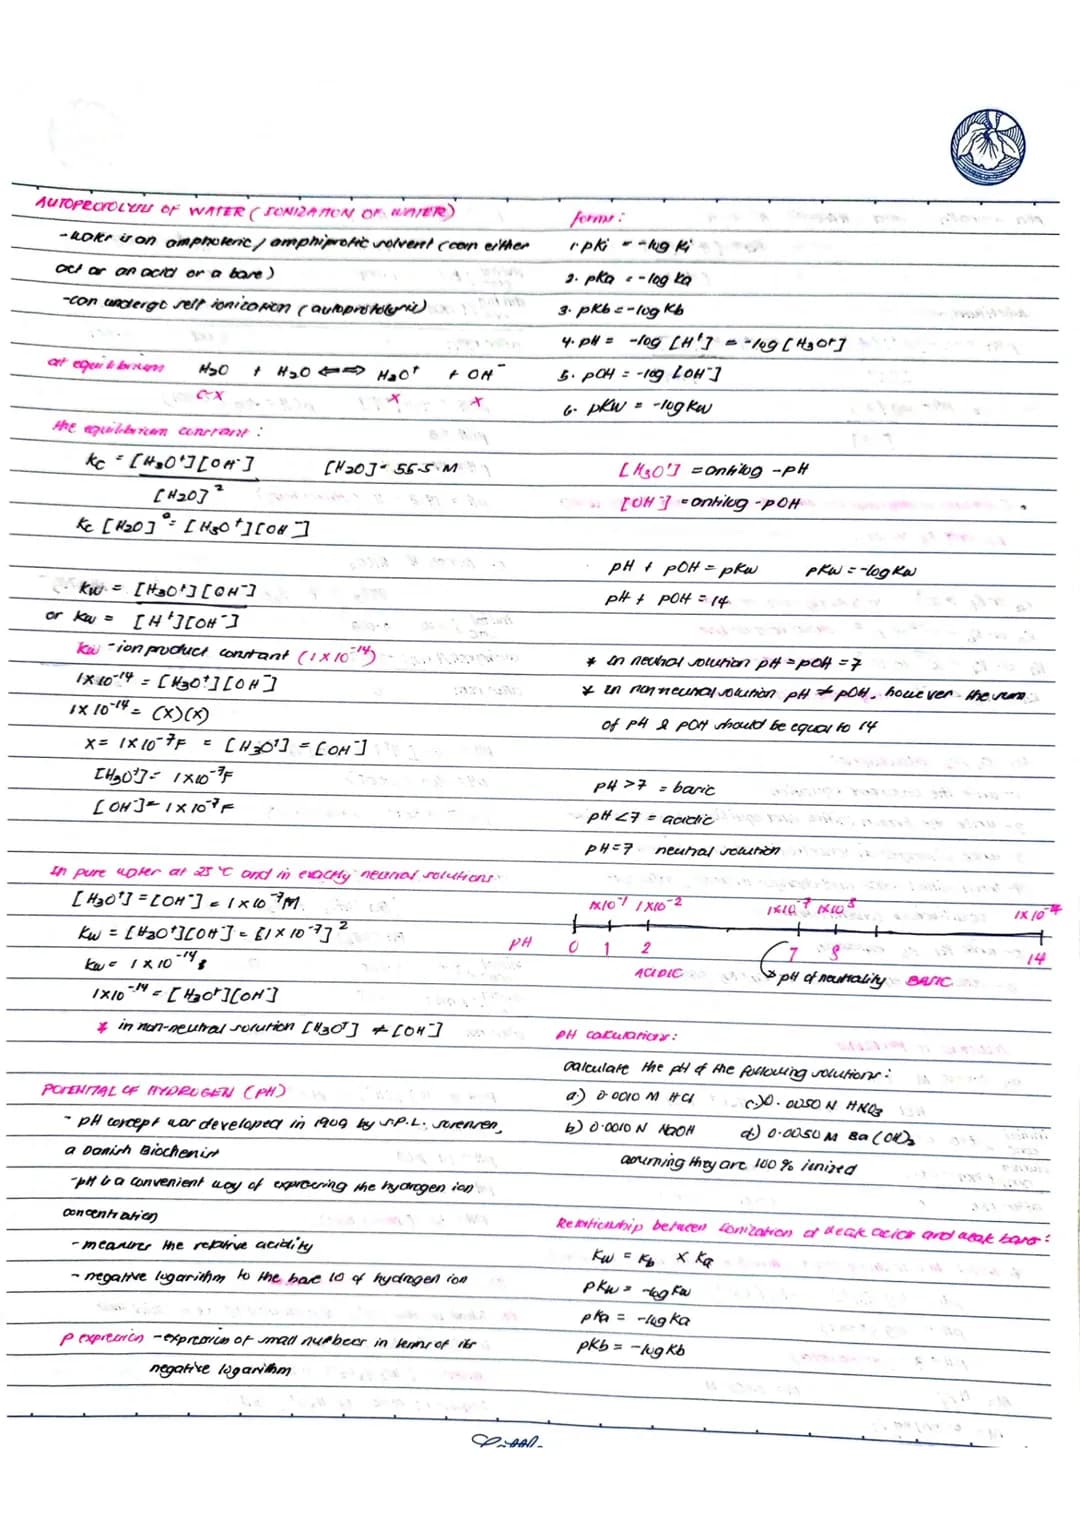 AUTOPROTOLYSIS OF WATER (IONIZATION OF WATER)
-water is an amphoteric / amphiprotic solvent (can either
act as an acid or a base)
-can undergo self ionization (autoprotolysis)
at equilibrium H2O + H2O ⇌ H3O+ + OH-
c-x x x
the equilibrium constant :
Kc = [H3O+][OH-] [H2O] = 55.5 M
[H2O]2
Kc [H2O]0 = [H3O+][OH-]
Kw = [H3O+][OH-]
or Kw = [H+][OH-]
Kw - ion product constant (1x10-14)
1x10-14 = [H3O+][OH-]
1x10-14 = (x)(x)
x = 1x10-7F = [H3O+] = [OH-]
[H3O+] = 1x10-7F
[OH-] = 1x10-7F
In pure water at 25°C and in exactly neutral solutions
[H3O+] = [OH-] = 1x10-7M
Kw = [H3O+][OH-] = [1x10-7]2
Kw = 1x10-14;
1x10-14 = [H3O+][OH-]
* in non-neutral solution [H3O+] ≠ [OH-]
POTENTIAL OF HYDROGEN (PH)
- pH concept was developed in 1909 by S.P.L. Sorensen,
a Danish Biochemist
-pH is a convenient way of expressing the hydrogen ion
concentration
- measures the relative acidity
- negative logarithm to the base 10 of hydrogen ion
p expression - expression of small numbers in terms of its
negative logarithm
forms :
1. pKi = -log Ki
2. pKa = -log Ka
3. pKb = -log Kb
4. pH = -log [H+] = -log [H3O+]
5. pOH = -log [OH-]
6. pKw = -log Kw
[H3O+] = antilog -pH
[OH-] = antilog -pOH
pH + pOH = pKw pKw = -log Kw
pH + pOH = 14
* in neutral solution pH = pOH = 7
* in non neutral solution pH ≠ pOH, however the sum
of pH & pOH should be equal to 14
pH >7 = basic
pH <7 = acidic
pH = 7 neutral solution
1x10-1 1x10-2 1x10-7 1x10-8 1x10-14
PH 0 1 2 7 8 14
ACIDIC pH of neutrality BASIC
pH calculations :
calculate the pH of the following solutions :
a.) 0.0010 M HCl c.) 0.0050 N HNO3
b) 0.0010 N NaOH d) 0.0050 M Ba(OH)2
assuming they are 100% ionized
Relationship between Ionization of weak acids and weak bases :
Kw = Kb x Ka
pKw = -log Kw
pKa = -log Ka
pKb = -log Kb